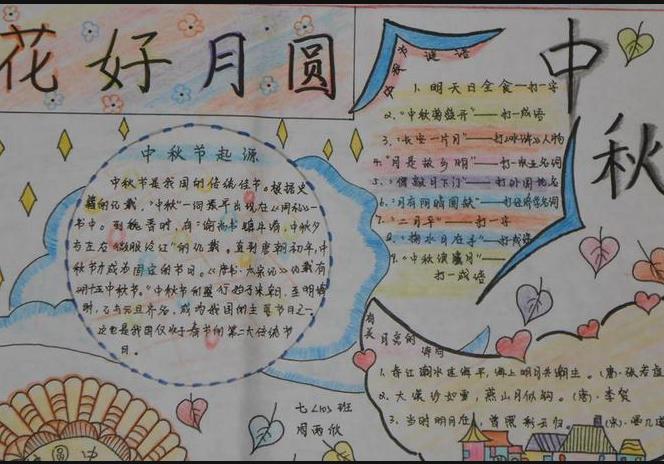 花好月圆
中秋
中秋节起源
中秋节是我国的传统佳节。根据史
籍的记载,"中秋"一词最早出现在《周礼》一
书中。到魏晋时,有"谕尚书镇牛渚,中秋夕
与左右微服泛江"的记载。直到唐朝初年,中
秋节才成为固定的节日。《唐书·太宗记》记载有
"八月十五中秋节"。中秋节的盛行始于宋朝,至明清
时,已与元旦齐名,成为我国的主要节日之一。
这也是我国仅次于春节的第二大传统节
日。
中秋节谜语
1. 明天日全食——打一字
2. "中秋菊盛开"——打一成语
3. "长安一片月"——打《水浒》人物
4. "月是故乡明"——打一
5. "僧敲月下门"——打外国地名
6. "月有阴晴圆缺"——打经济学名词
7. "二月平"——打一字
8. "掬水月在手"——打成语
9. "中秋演魔月"——
打一成语
有关月亮的诗句
1. 春江潮水连海平,海上明月共潮生。(唐)·张若虚
2. 大漠沙如雪,燕山月似钩。(唐)·李贺
3. 当时明月在,曾照彩云归。(宋)·晏几道
七<10>班
周雨欣
圆 中